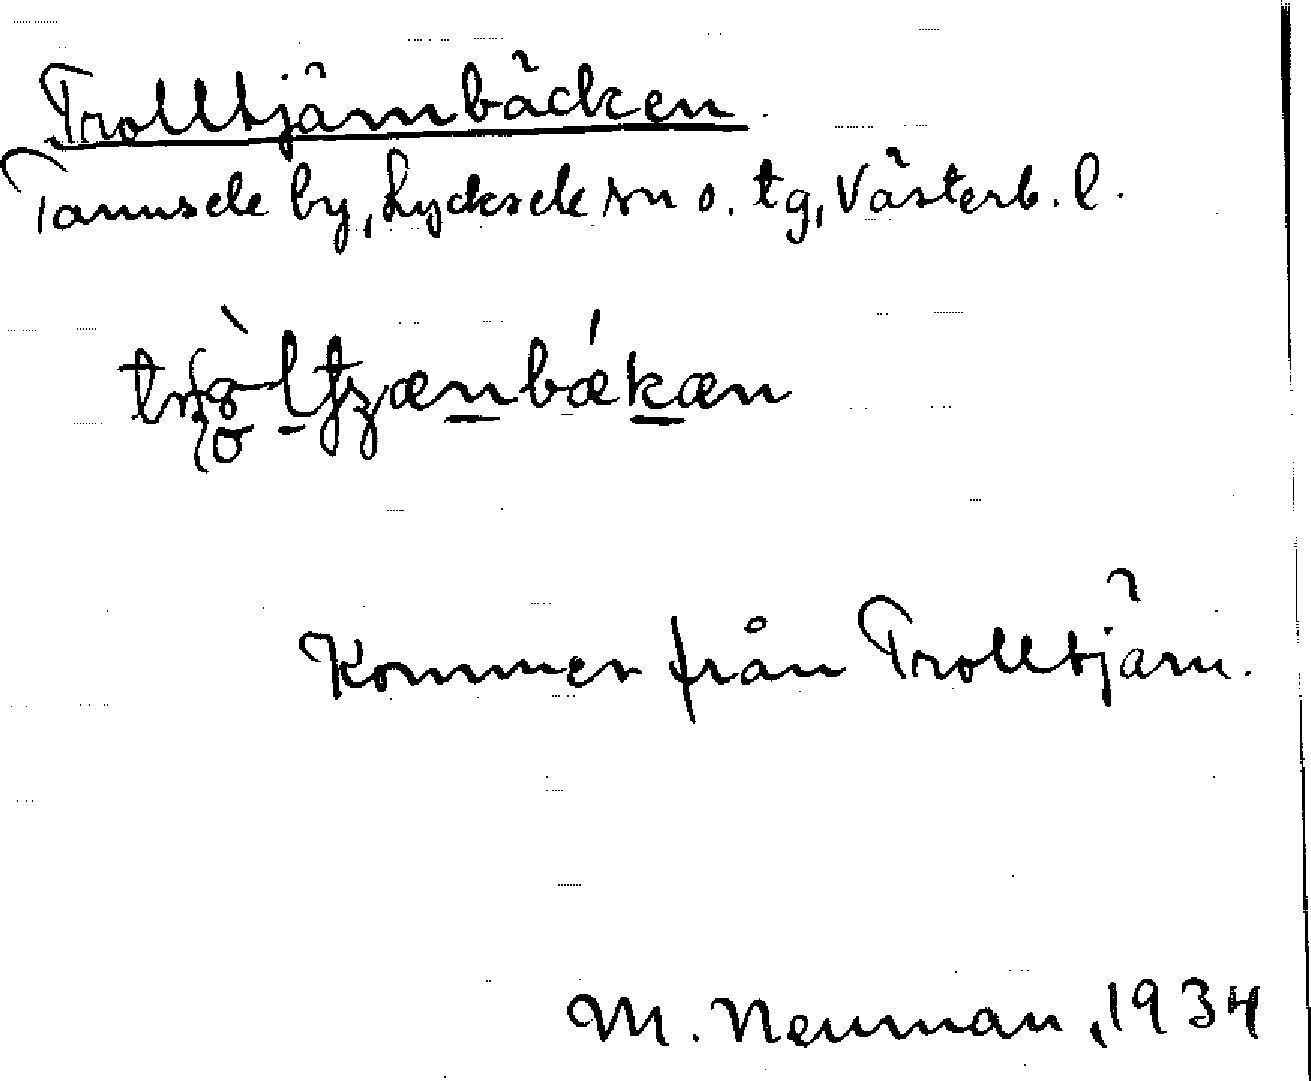 Trolltjärnbäcken
Tannsele by, Lycksele sn o. tg, Västerb. l.
Kommer från Trolltjärn.
M. Neuman, 1934